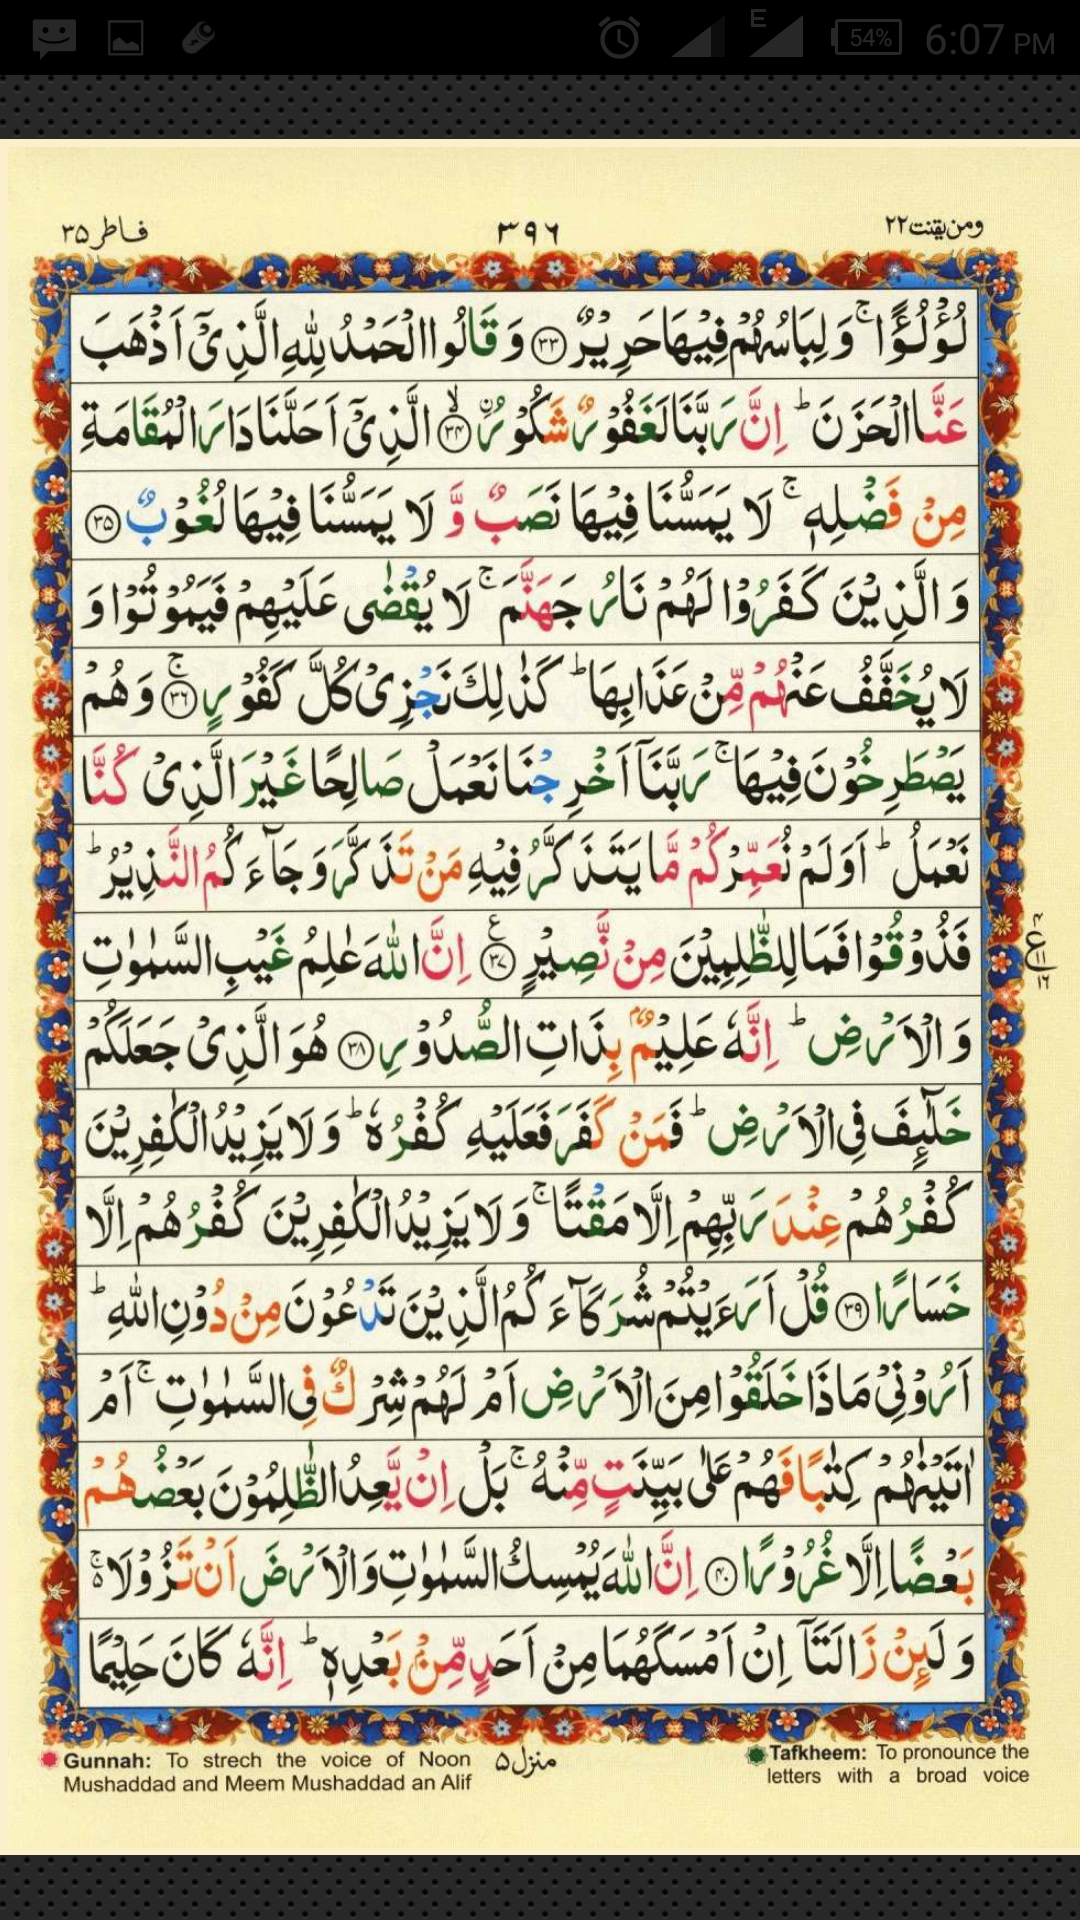 54% 6:07 PM
E
فاطر ۳۵
۳۹۶
ومن يقنت ۲۲
لُؤْلُؤًا ۚ وَ لِبَاسُهُمْ فِيْهَا حَرِيْرٌ ﴿۳۳﴾ وَ قَالُوا الْحَمْدُ لِلّٰهِ الَّذِیْۤ اَذْهَبَ
عَنَّا الْحَزَنَ ؕ اِنَّ رَبَّنَا لَغَفُوْرٌ شَكُوْرُ ۨ ﴿۳۴﴾ۙ الَّذِیْۤ اَحَلَّنَا دَارَ الْمُقَامَةِ
مِنْ فَضْلِهٖ ۚ لَا يَمَسُّنَا فِيْهَا نَصَبٌ وَّ لَا يَمَسُّنَا فِيْهَا لُغُوْبٌ ﴿۳۵﴾
وَ الَّذِيْنَ كَفَرُوْا لَهُمْ نَارُ جَهَنَّمَ ۚ لَا يُقْضٰى عَلَيْهِمْ فَيَمُوْتُوْا وَ
لَا يُخَفَّفُ عَنْهُمْ مِّنْ عَذَابِهَا ؕ كَذٰلِكَ نَجْزِیْ كُلَّ كَفُوْرٍ ﴿۳۶﴾ۚ وَ هُمْ
يَصْطَرِخُوْنَ فِيْهَا ۚ رَبَّنَاۤ اَخْرِجْنَا نَعْمَلْ صَالِحًا غَيْرَ الَّذِیْ كُنَّا
نَعْمَلُ ؕ اَوَلَمْ نُعَمِّرْكُمْ مَّا يَتَذَكَّرُ فِيْهِ مَنْ تَذَكَّرَ وَ جَآءَكُمُ النَّذِيْرُ ؕ
فَذُوْقُوْا فَمَا لِلظّٰلِمِيْنَ مِنْ نَّصِيْرٍ ﴿۳۷﴾ اِنَّ اللّٰهَ عٰلِمُ غَيْبِ السَّمٰوٰتِ
ع
۴
۱۱
۱۶
وَ الْاَرْضِ ؕ اِنَّهٗ عَلِيْمٌۢ بِذَاتِ الصُّدُوْرِ ﴿۳۸﴾ هُوَ الَّذِیْ جَعَلَكُمْ
خَلٰٓئِفَ فِی الْاَرْضِ ؕ فَمَنْ كَفَرَ فَعَلَيْهِ كُفْرُهٗ ؕ وَ لَا يَزِيْدُ الْكٰفِرِيْنَ
كُفْرُهُمْ عِنْدَ رَبِّهِمْ اِلَّا مَقْتًا ۚ وَ لَا يَزِيْدُ الْكٰفِرِيْنَ كُفْرُهُمْ اِلَّا
خَسَارًا ﴿۳۹﴾ قُلْ اَرَءَيْتُمْ شُرَكَآءَكُمُ الَّذِيْنَ تَدْعُوْنَ مِنْ دُوْنِ اللّٰهِ ؕ
اَرُوْنِیْ مَاذَا خَلَقُوْا مِنَ الْاَرْضِ اَمْ لَهُمْ شِرْكٌ فِی السَّمٰوٰتِ ۚ اَمْ
اٰتَيْنٰهُمْ كِتٰبًا فَهُمْ عَلٰى بَيِّنَتٍ مِّنْهُ ۚ بَلْ اِنْ يَّعِدُ الظّٰلِمُوْنَ بَعْضُهُمْ
بَعْضًا اِلَّا غُرُوْرًا ﴿۴۰﴾ اِنَّ اللّٰهَ يُمْسِكُ السَّمٰوٰتِ وَ الْاَرْضَ اَنْ تَزُوْلَا ۚ۬
وَ لَئِنْ زَالَتَاۤ اِنْ اَمْسَكَهُمَا مِنْ اَحَدٍ مِّنْۢ بَعْدِهٖ ؕ اِنَّهٗ كَانَ حَلِيْمًا
Gunnah: To strech the voice of Noon
Mushaddad and Meem Mushaddad an Alif
منزل ۵
Tafkheem: To pronounce the
letters with a broad voice